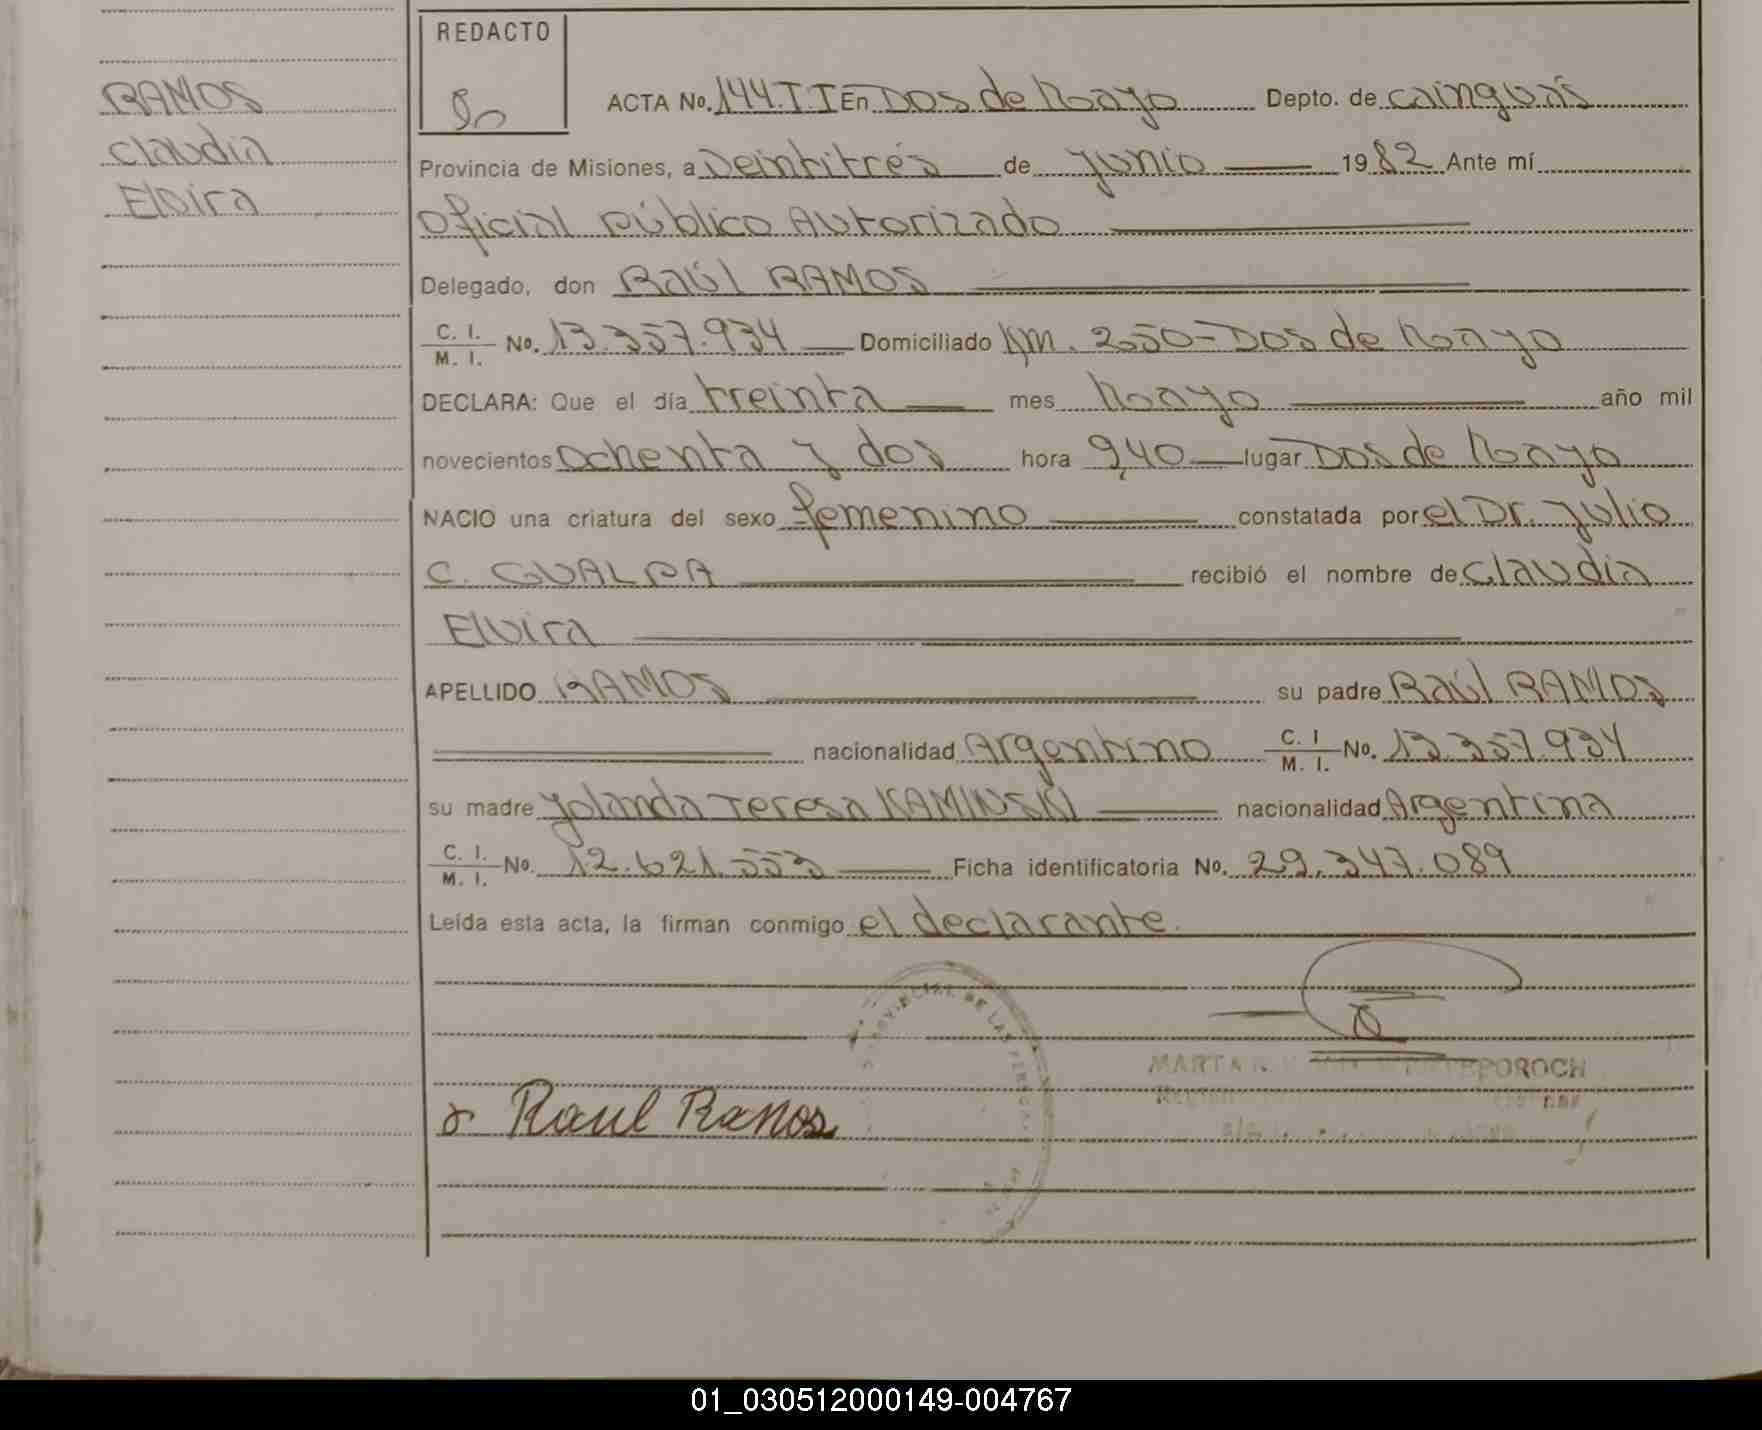 RAMOS
Claudia
Elvira
REDACTO
ACTA No. 144.T I En Dos de Mayo Depto. de Cainguás
Provincia de Misiones, a Veintitrés de Junio 1982 Ante mí
Oficial Público Autorizado
Delegado, don Raúl RAMOS
C. I. / M. I. No. 13.357.934 Domiciliado Km. 250-Dos de Mayo
DECLARA: Que el día treinta mes Mayo año mil
novecientos ochenta y dos hora 9,40 lugar Dos de Mayo
NACIO una criatura del sexo femenino constatada por el Dr. Julio
C. GUALPA recibió el nombre de Claudia
Elvira
APELLIDO RAMOS su padre Raúl RAMOS
nacionalidad Argentino C. I / M. I. No. 13.357.934
su madre Yolanda Teresa KAMINSKI nacionalidad Argentina
C. I. / M. I. No. 12.621.553 Ficha identificatoria No. 29.347.089
Leída esta acta, la firman conmigo el declarante.
PROVINCIAL DE LAS PERSONAS
MARTA
POROCH
Raul Ramos
01_030512000149-004767